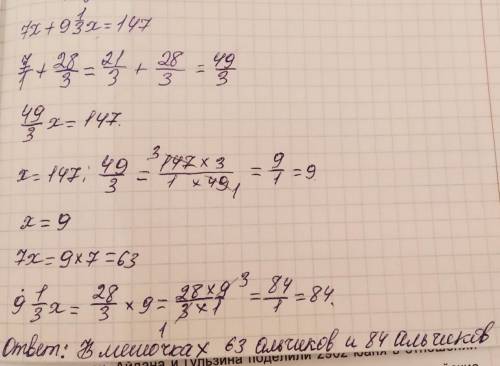 7x + 9 1/3 x = 147
7/1 + 28/3 = 21/3 + 28/3 = 49/3
49/3 x = 147.
x = 147 : 49/3 = ³147 × 3 / 1 × 49₁ = 9/1 = 9
x = 9
7x = 9 × 7 = 63
9 1/3 x = 28/3 × 9 = 28 × 9³ / ₁3 × 1 = 84/1 = 84.
Ответ: В мешочках 63 альчиков и 84 альчиков
Айдана и Гульзина поделили 2902 юаня в отношении